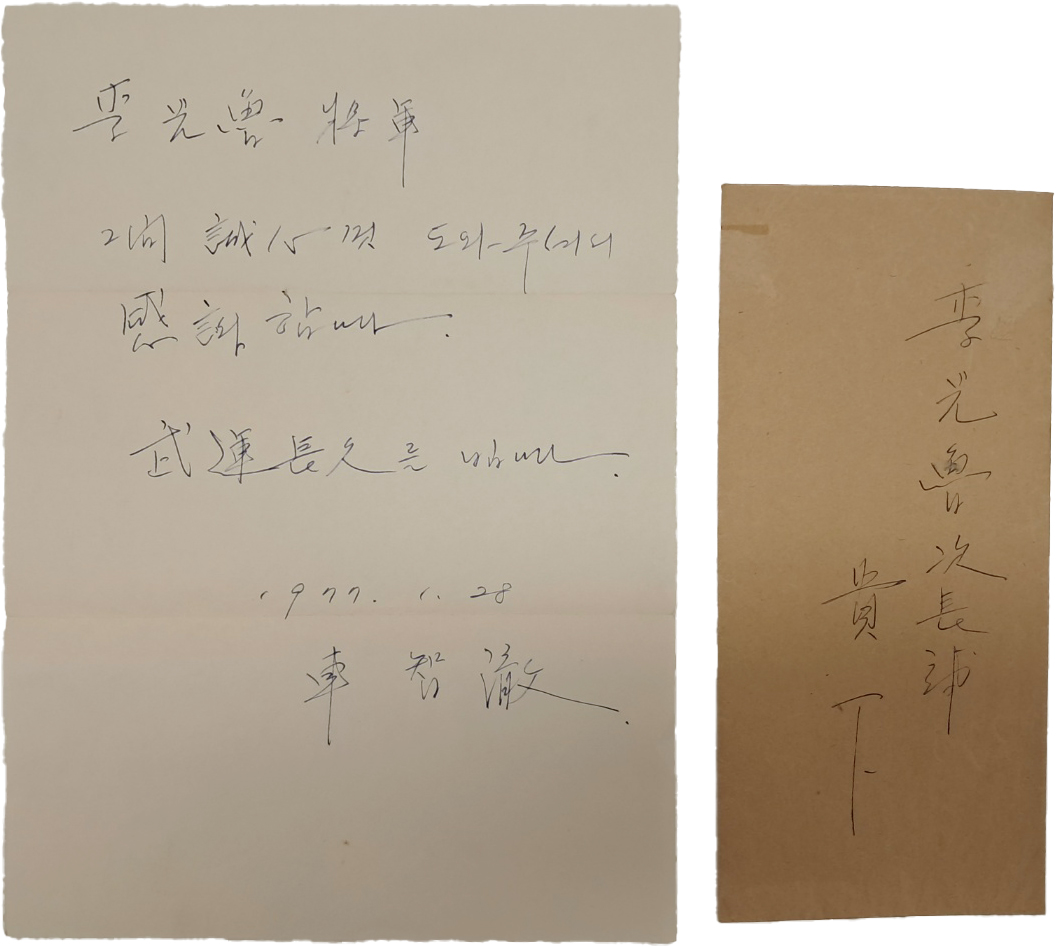 李光魯 將軍
그間 誠心껏 도와주셔서
感謝합니다.
武運長久를 빕니다.
1977. 1. 28
車 智 澈.
李光魯次長補
貴下